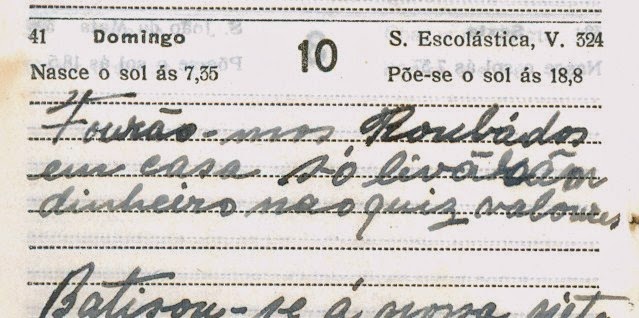 41 Domingo 10 S. Escolástica, V. 324
Nasce o sol ás 7,35 Põe-se o sol ás 18,8
Fourão-mos Roubádos
em casa só livárão
dinheiro não quiz valoures
Batisou-se á nova